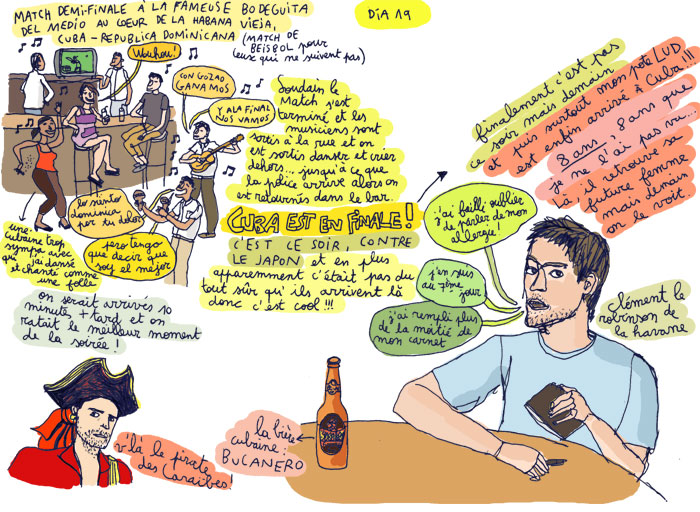 MATCH DEMI-FINALE À LA FAMEUSE BODEGUITA
DEL MEDIO AU COEUR DE LA HABANA VIEJA,
CUBA - REPUBLICA DOMINICANA (MATCH DE
BEISBOL pour
ceux qui ne suivent pas)
DIA 19
Wouhou!
CON GOZAO
GANAMOS
Y A LA FINAL
NOS VAMOS
lo siento
dominica
per tu dolor
pero tengo
que decir que
soy el mejor
une
cubaine trop
sympa avec
qui j'ai dansé
et chanté comme
une folle
on serait arrivés 10
minutes + tard et on
ratait le meilleur moment
de la soirée !
Soudain le
match s'est
terminé et les
musiciens sont
sortis à la rue et on
est sortis danser et crier
dehors... jusqu'à ce que
la police arrive alors on
est retournés dans le bar.
CUBA EST EN FINALE !
C'EST CE SOIR, CONTRE
LE JAPON et en plus
apparemment c'était pas du
tout sûr qu'ils arrivent là
donc c'est cool !!!
finalement c'est pas
ce soir mais demain
et puis surtout mon pote LUD
est enfin arrivé à Cuba !!!
8 ans ! 8 ans que
je ne l'ai pas vu...
Là il retrouve sa
future femme
mais demain
on le voit.
j'ai failli oublier
de parler de mon
allergie!
j'en suis
au 7ème
jour
j'ai rempli plus
de la moitié de
mon carnet
Clément le
robinson de
la havane
v'là le pirate
des Caraïbes!
la bière
cubaine:
BUCANERO